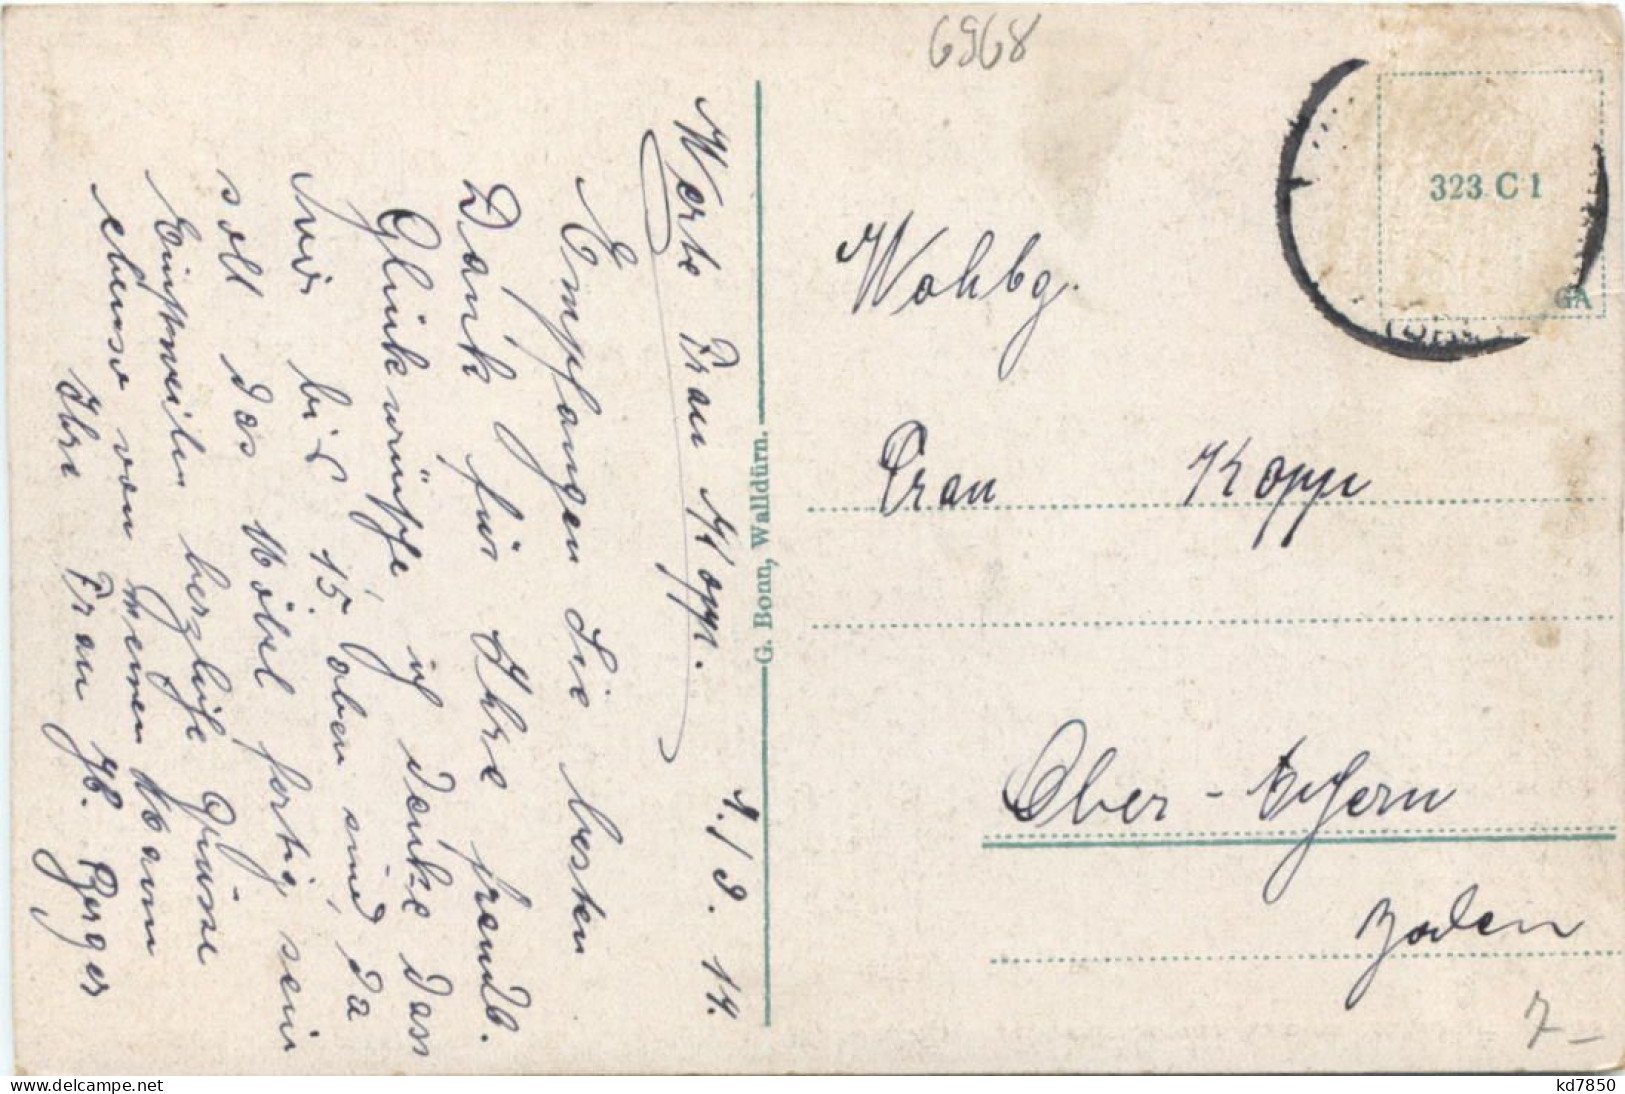 6968
Werte Frau Kopp.
1./9. 14.
Empfangen Sie besten
Dank für Ihre freundl.
Glückwünsche, ich denke dass
wir bis 15. oben sind, da
soll das Möbel fertig sein
Einstweilen herzliche Grüsse
ebenso von meinen Mann
Ihre Frau Berger
G. Bonn, Walldürn.
323 C 1
GA
Wohlbg.
Frau Kopp
Ober-
Baden
7-
www.delcampe.net
kd7850